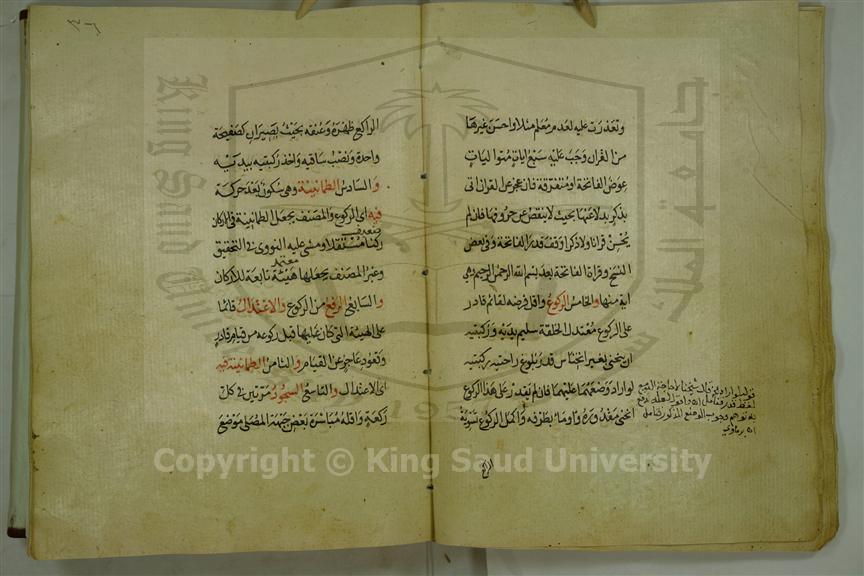 وتعذرت عليه لعدم معلم مثلا واحسن غيرها
من القران وجب عليه سبع ايات متواليات
عوض الفاتحة او متفرقة فان عجز عن القران اتى
بذكر بدلا عنها بحيث لا ينقص عن حروفها فان لم
يحسن قرانا ولا ذكرا وقف قدر الفاتحة وفي بعض
النسخ وقراة الفاتحة بعد بسم الله الرحمن الرحيم وهي
اية منها والخامس الركوع واقل فرضه لقائم قادر
على الركوع معتدل الخلقة سليم يديه وركبتيه
ان ينحني بغير انخناس قدر بلوغ راحتيه ركبتيه
لو اراد وضعهما عليهما فان لم يقدر على هذا الركوع
انحنى مقدوره واومأ بطرفه واكمل الركوع تسوية
الراكع
قوله لو اراد
الراكع ظهره وعنقه بحيث يصيران كصفيحة
واحدة ونصب ساقيه واخذ ركبتيه بيديه
والسادس الطمانينة وهي سكون بعد حركة
فيه اي الركوع والمصنف يجعل الطمانينة في الاركان
ضعيف
ركنا مستقلا ومشى عليه النووي في التحقيق
معتمد
وغير المصنف يجعلها هيئة تابعة للاركان
والسابع الرفع من الركوع والاعتدال قائما
على الهيئة التي كان عليها قبل ركوعه من قيام قادر
وقعود عاجز عن القيام والثامن الطمانينة فيه
اي الاعتدال والتاسع السجود مرتين في كل
ركعة واقله مباشرة بعض جبهة المصلي موضع
جامعة الملك سعود
King Saud University
1957
Copyright © King Saud University